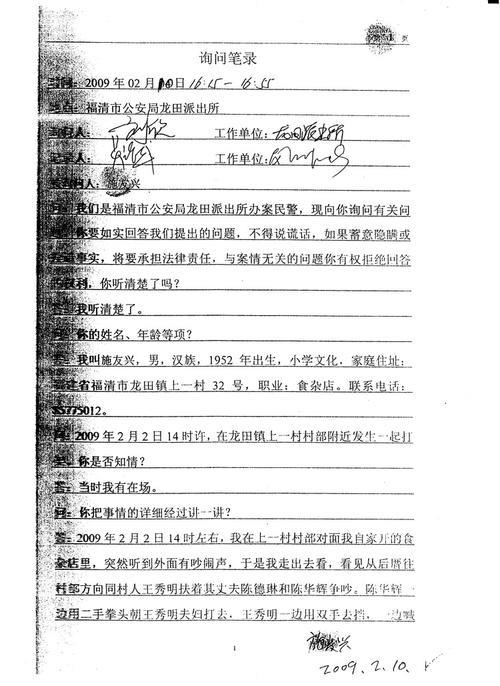 页
询问笔录
时间：2009 年 02 月 10 日 16:15 - 16:55
地点：福清市公安局龙田派出所
询问人： 工作单位：龙田派出所
记录人： 工作单位：
被询问人：施友兴
问：我们是福清市公安局龙田派出所办案民警，现向你询问有关问
你要如实回答我们提出的问题，不得说谎话，如果蓄意隐瞒或
事实，将要承担法律责任，与案情无关的问题你有权拒绝回答
权利，你听清楚了吗？
答：我听清楚了。
问：你的姓名、年龄等项？
答：我叫施友兴，男，汉族，1952 年出生，小学文化．家庭住址：
福建省福清市龙田镇上一村 32 号，职业：食杂店。联系电话：
85775012。
问：2009 年 2 月 2 日 14 时许，在龙田镇上一村村部附近发生一起打
你是否知情？
答：当时我有在场。
问：你把事情的详细经过讲一讲？
答：2009 年 2 月 2 日 14 时左右，我在上一村村部对面我自家开的食
杂店里，突然听到外面有吵闹声，于是我走出去看，看见从后厝往
村部方向同村人王秀明扶着其丈夫陈德琳和陈华辉争吵。陈华辉一
边用二手拳头朝王秀明夫妇打去，王秀明一边用双手去挡，一边喊
1
施友兴
2009.2.10.